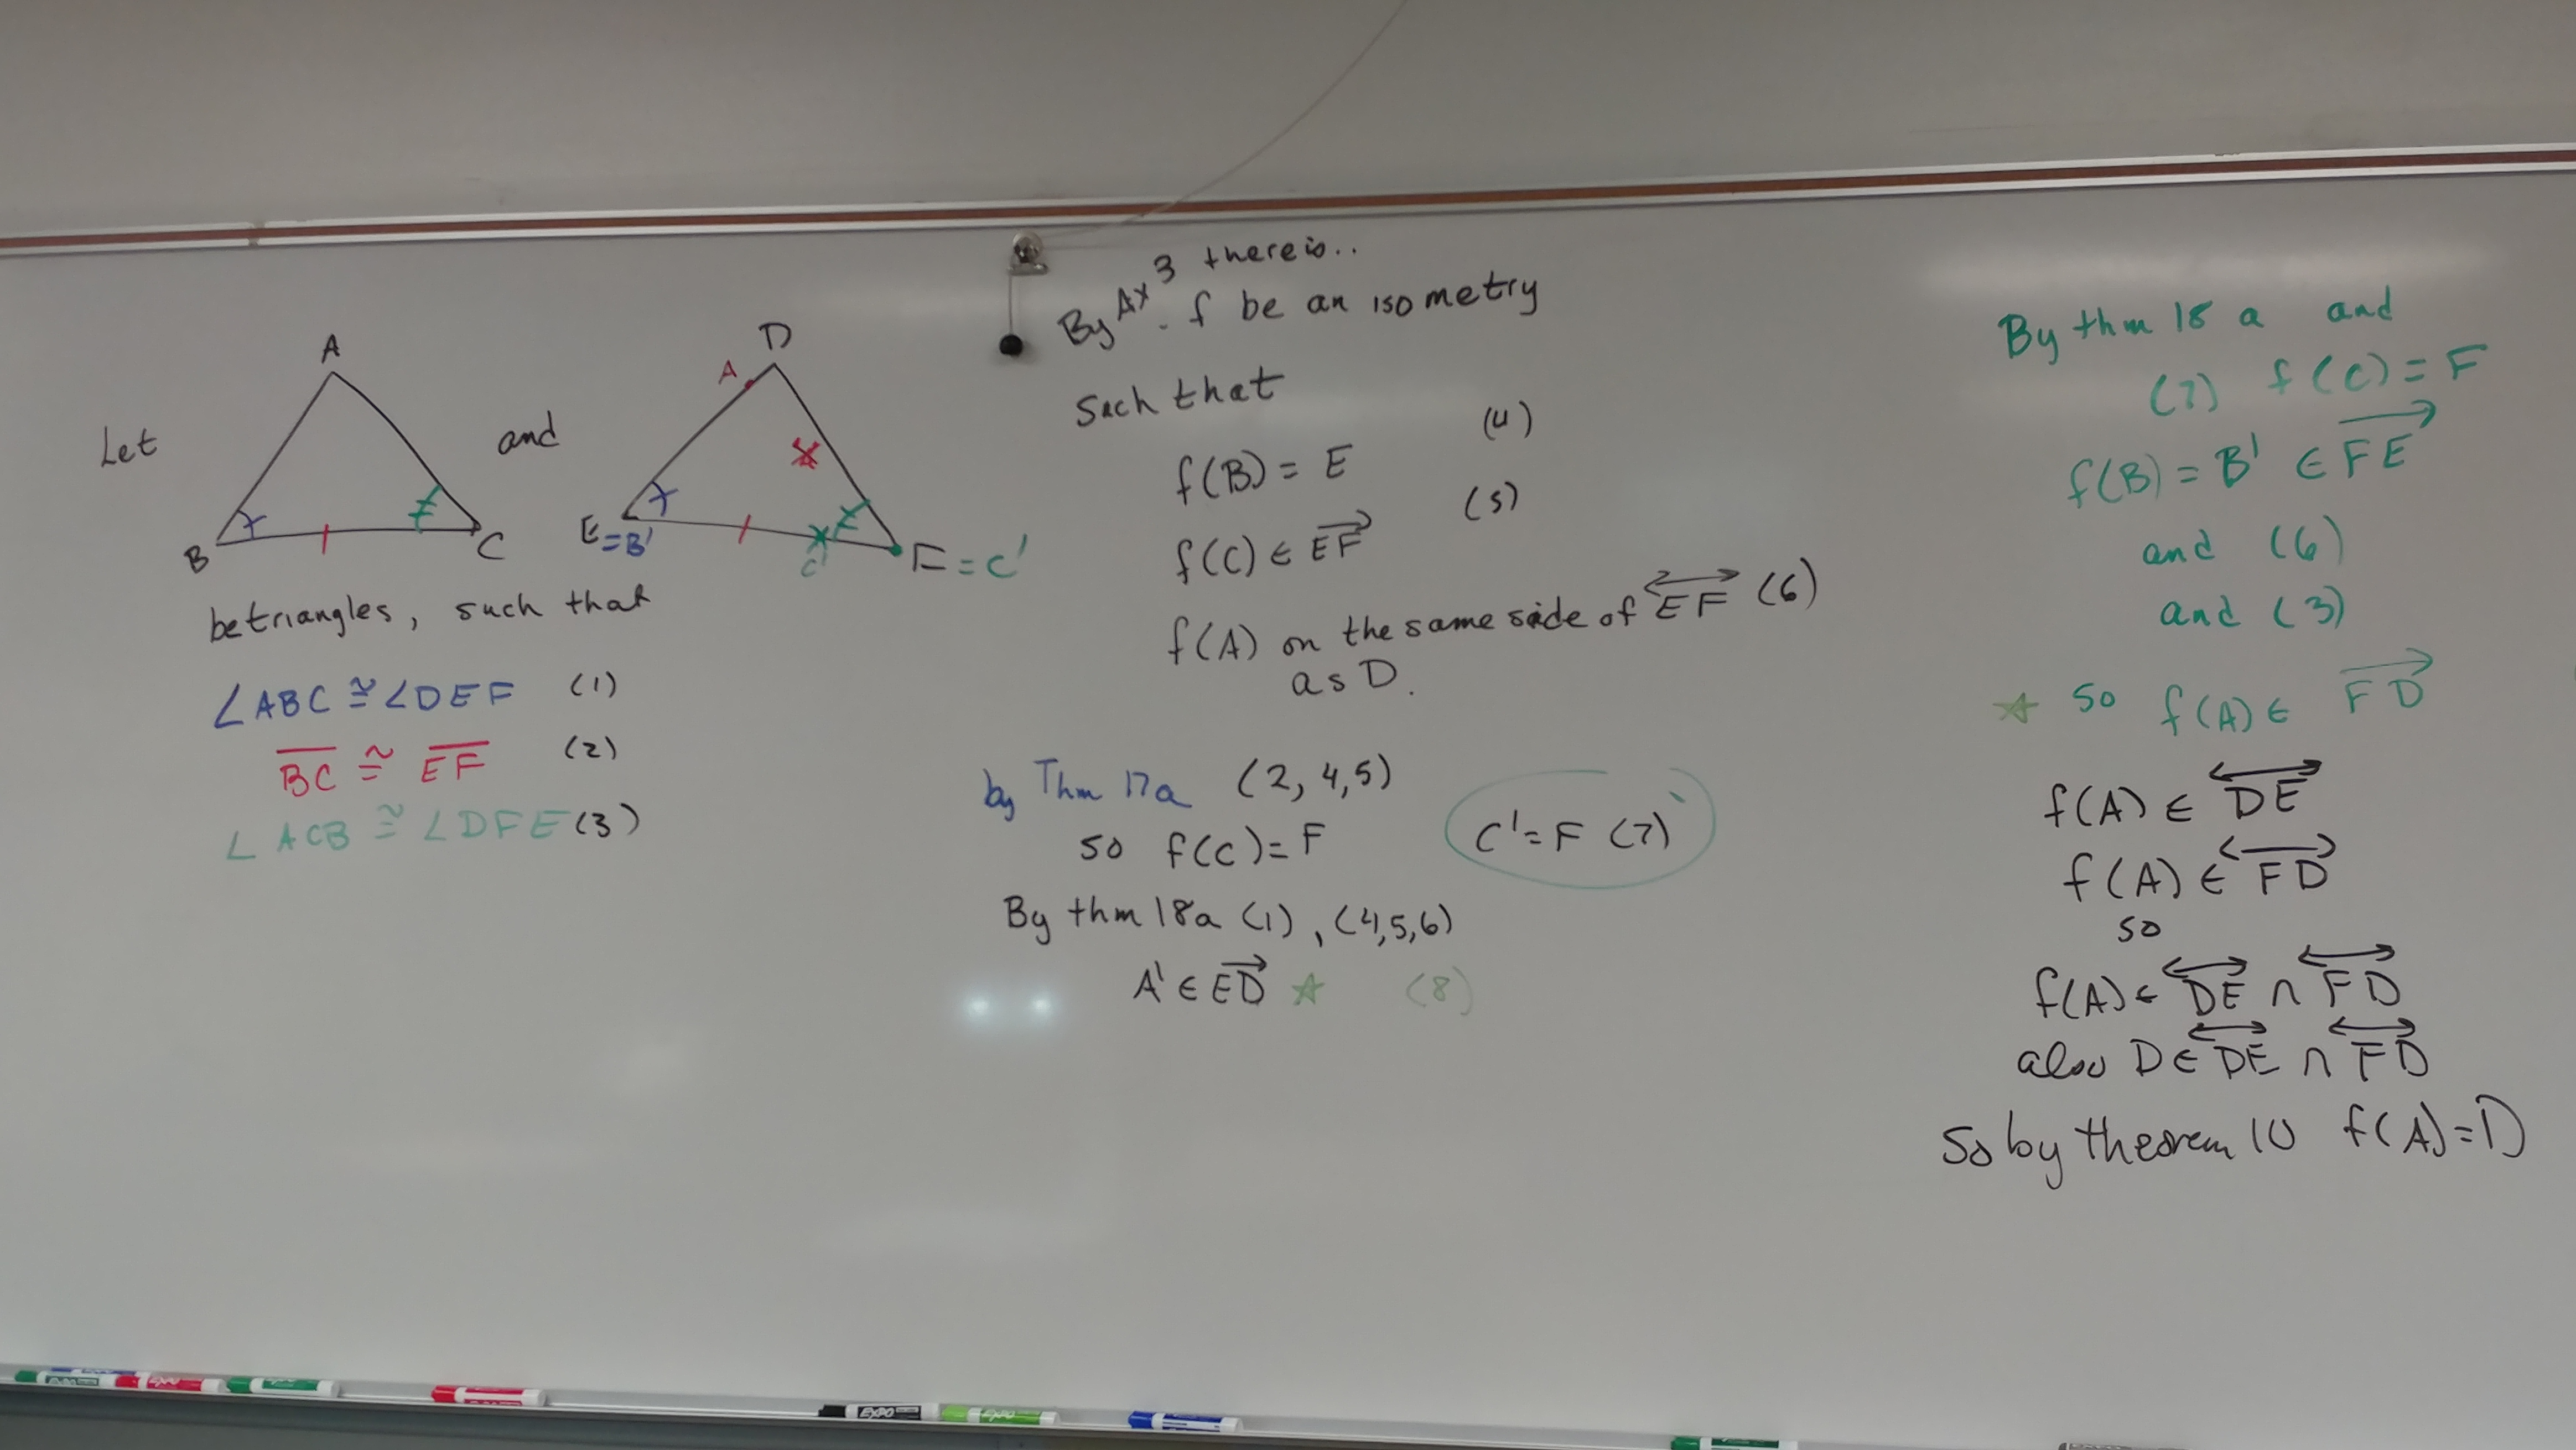 Let
A
B
C
and
D
A
E=B'
C'
F=C'
be triangles, such that
∠ABC ≅ ∠DEF (1)
B̅C̅ ≅ E̅F̅ (2)
∠ACB ≅ ∠DFE (3)
By Ax 3 there is..
f be an isometry
Such that
f(B) = E (4)
f(C) ∈ E͞F⃗ (5)
f(A) on the same side of EF⃡ (6)
as D.
by Thm 17a (2, 4,5)
so f(C)=F
C'=F (7)
By thm 18a (1), (4,5,6)
A' ∈ ED⃗ ☆ (8)
By thm 18 a and
(7) f(C)=F
f(B)=B' ∈ FE⃗
and (6)
and (3)
☆ so f(A) ∈ FD⃗
f(A) ∈ DE⃡
f(A) ∈ FD⃡
so
f(A) ∈ DE⃡ ∩ FD⃡
also D ∈ DE⃡ ∩ FD⃡
So by theorem 10 f(A)=D
EXPO
EXPO
EXPO